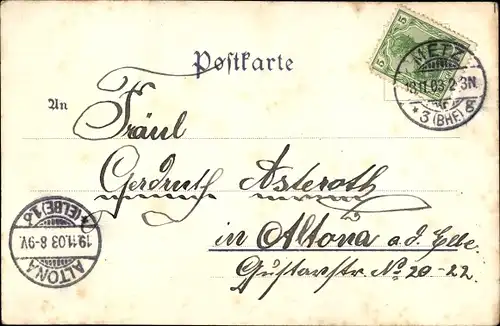 Postkarte
5 5
METZ
18.11.03.2-3N
* 3 (BHF.) g
An
Fräul
Gerdruth Asteroth
in Altona a.d. Elbe
Gustavstr. No 20-22.
ALTONA
19.11.03 8-9V.
* (ELBE) 1